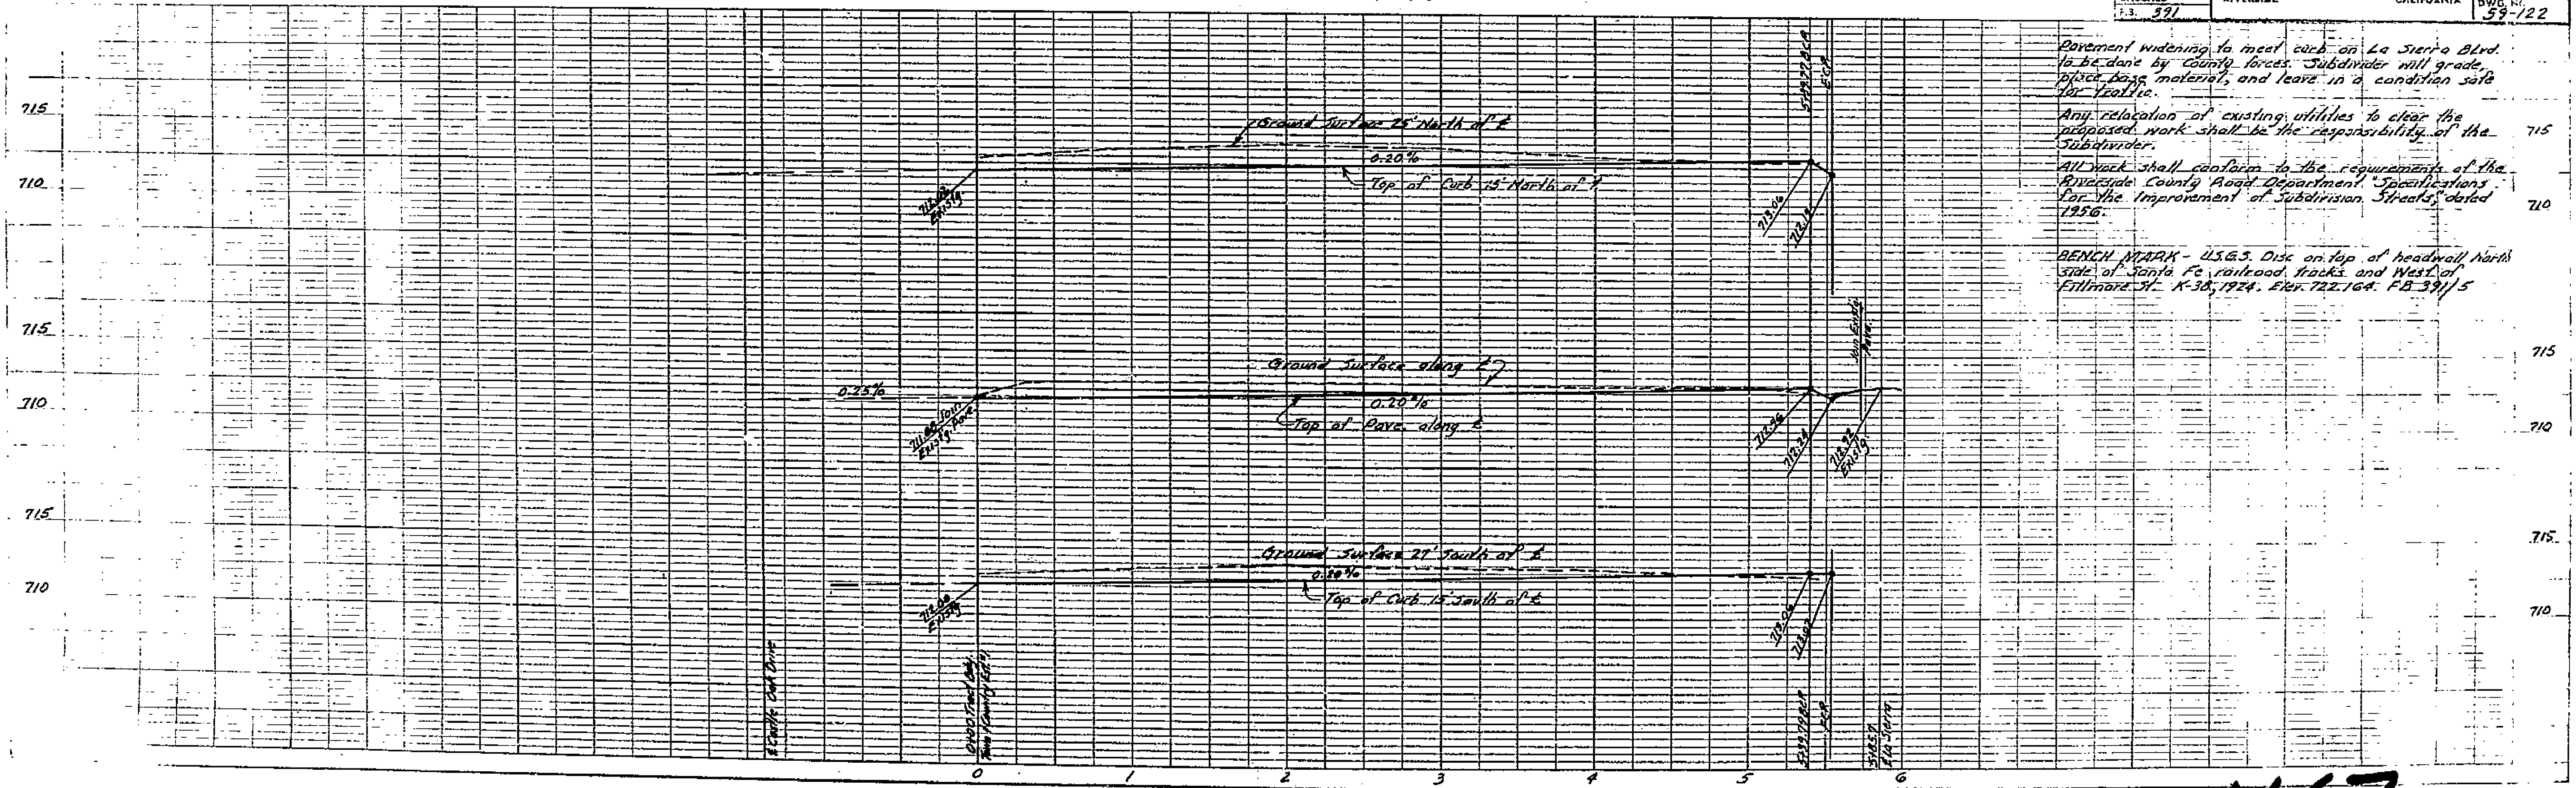 F.B. 391
RIVERSIDE
CALIFORNIA
DWG. No.
59-122
Pavement widening to meet curb on La Sierra Blvd.
to be done by County forces. Subdivider will grade,
place base material, and leave in a condition safe
for traffic.
Any relocation of existing utilities to clear the
proposed work shall be the responsibility of the
Subdivider.
All work shall conform to the requirements of the
Riverside County Road Department "Specifications
for the Improvement of Subdivision Streets," dated
1956.
BENCH MARK - U.S.G.S. Disc on top of headwall North
side of Santa Fe railroad tracks and West of
Fillmore St. K-38, 1924. Elev. 722.164 F.B. 391/5
715
710
715
710
E.C.R.
Ground Surface 25' North of ℄
0.20%
Top of Curb 15' North of ℄
Exist'g.
713.06
712.19
715
710
715
710
Ground Surface along ℄
0.25%
0.20%
Top of Pave. along ℄
Join
Exist'g. Pave.
Join Exist'g.
Pave.
712.96
712.24
712.92
Exist'g.
715
710
715
710
Ground Surface 27' South of ℄
0.20%
Top of Curb 15' South of ℄
712.00
Exist'g.
713.06
E.C.R.
℄ Castle Oak Drive
0+00 Tract Bdy.
℄ La Sierra
0 1 2 3 4 5 6